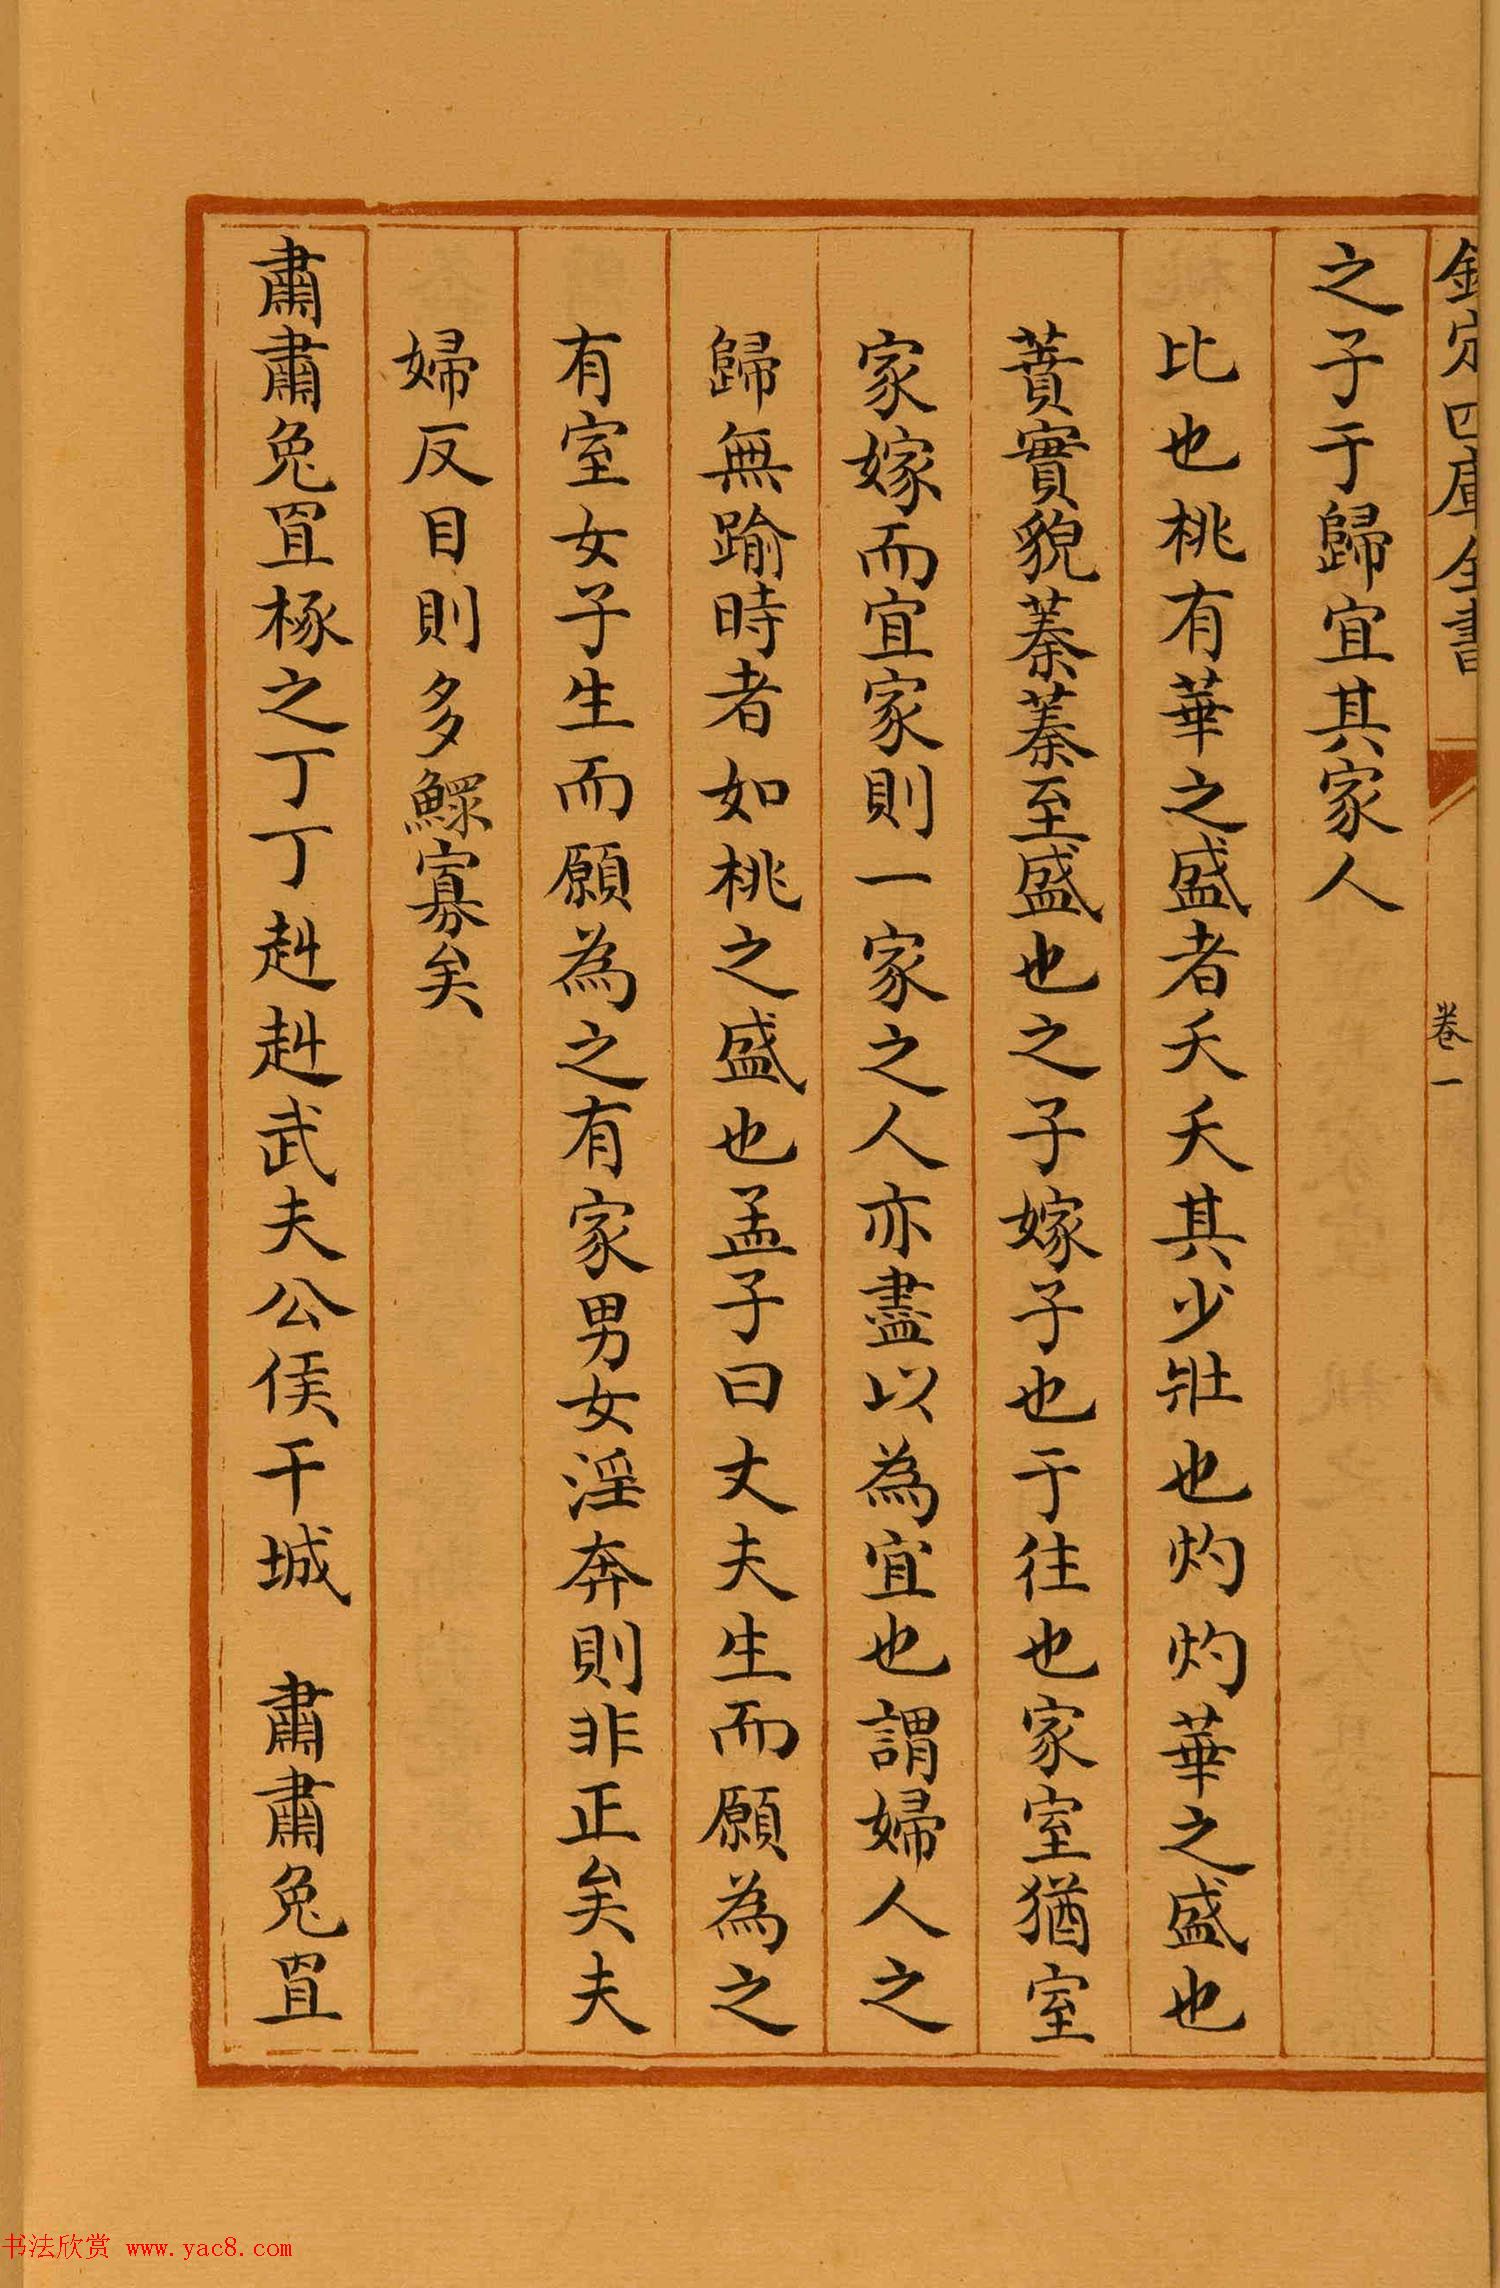 欽定四庫全書
卷一
之子于歸宜其家人
比也桃有華之盛者夭夭其少壯也灼灼華之盛也
蕡實貌蓁蓁至盛也之子嫁子也于往也家室猶室
家嫁而宜家則一家之人亦盡以為宜也謂婦人之
歸無踰時者如桃之盛也孟子曰丈夫生而願為之
有室女子生而願為之有家男女淫奔則非正矣夫
婦反目則多鰥寡矣
肅肅兔罝椓之丁丁赳赳武夫公侯干城　肅肅兔罝
书法欣赏 www.yac8.com